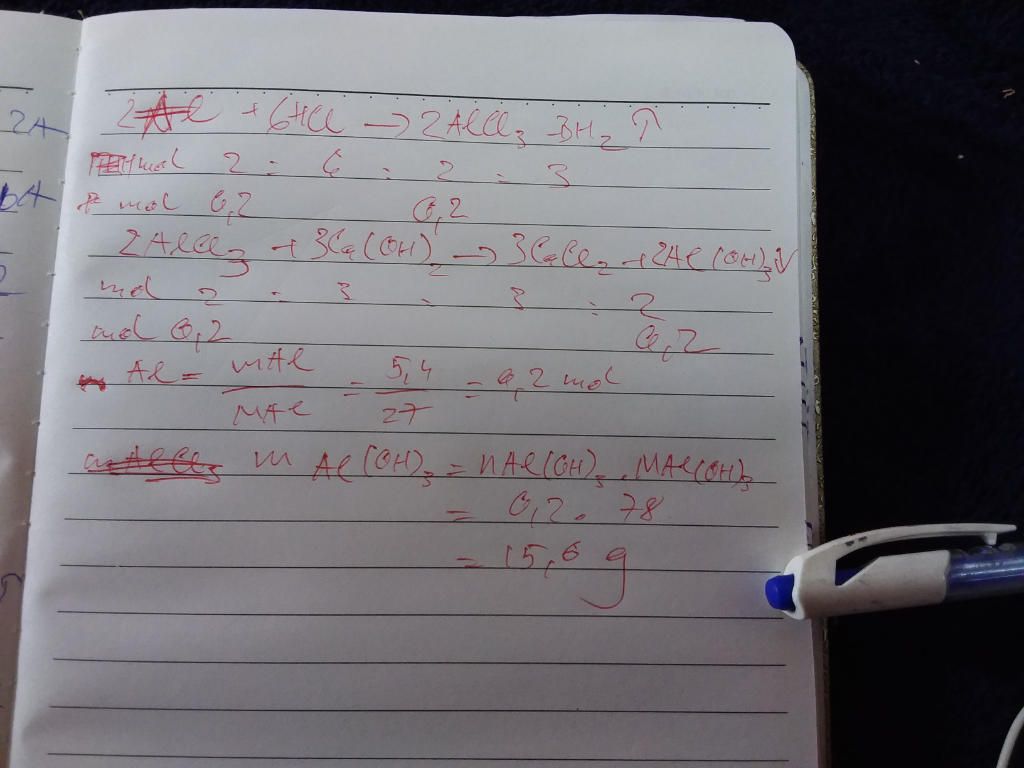 2A
6A
2
2Al + 6HCl → 2AlCl₃ 3H₂ ↑
mol 2 : 6 : 2 : 3
mol 0,2 0,2
2AlCl₃ + 3Ca(OH)₂ → 3CaCl₂ + 2Al(OH)₃↓
mol 2 : 3 : 3 : 2
mol 0,2 0,2
n Al = mAl / MAl = 5,4 / 27 = 0,2 mol
m Al(OH)₃ = nAl(OH)₃ . MAl(OH)₃
= 0,2 . 78
= 15,6 g